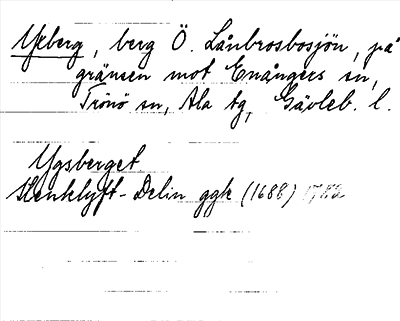 Yxberg, berg Ö. Lånbrosbosjön, på
gränsen mot Enångers sn,
Trönö sn, Ala tg, Gävleb. l.
Ygsberget
Stenklyft-Delin ggk (1688) 1782